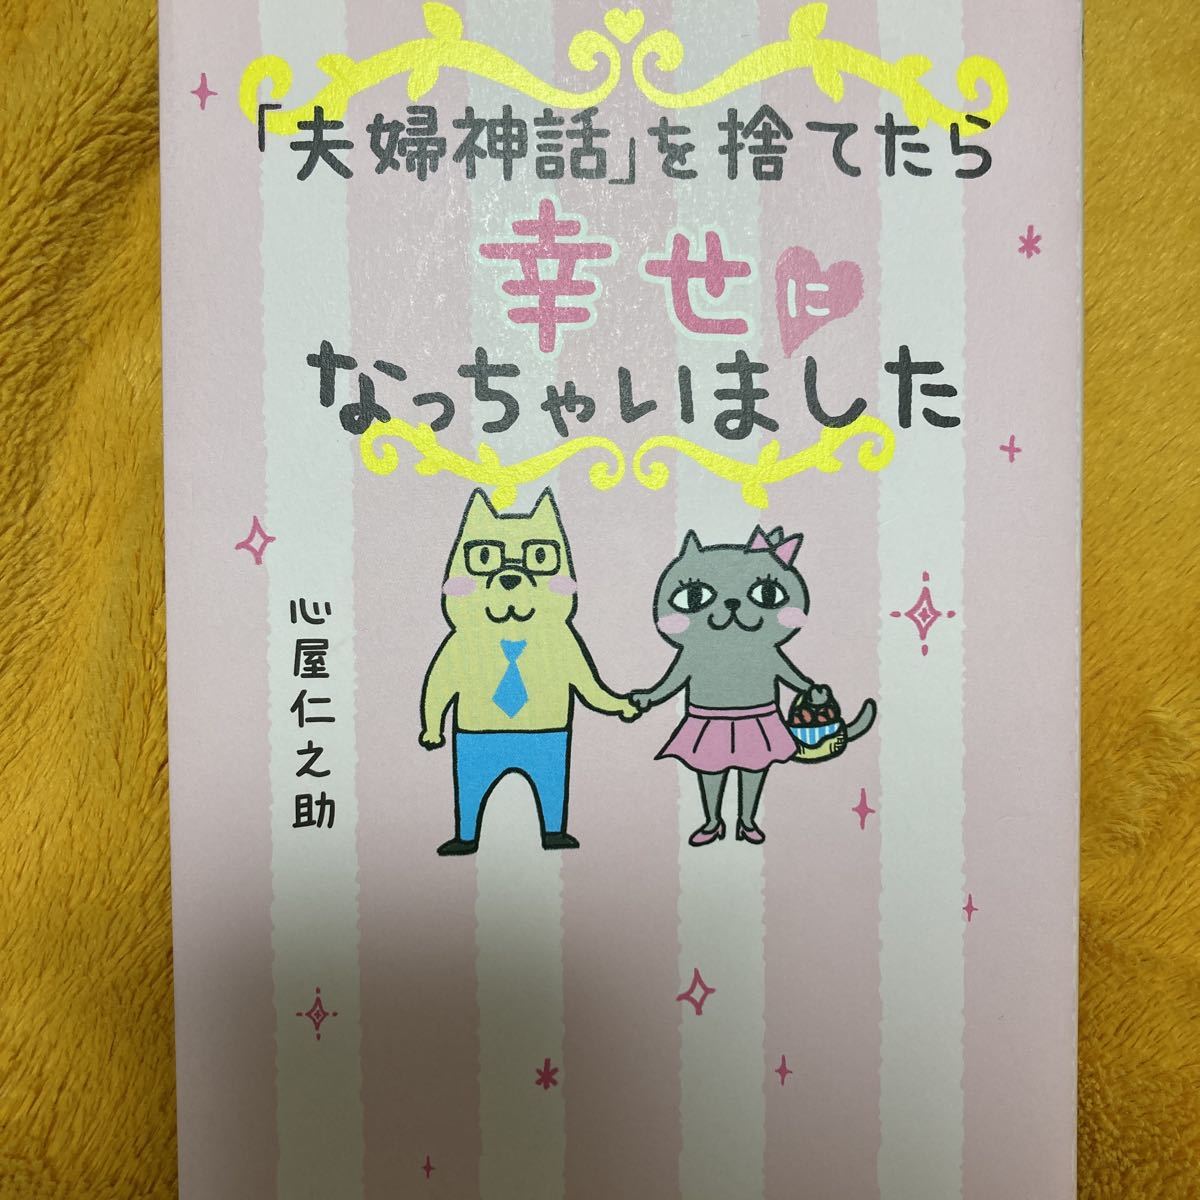 「夫婦神話」を捨てたら
幸せに
なっちゃいました
心屋仁之助